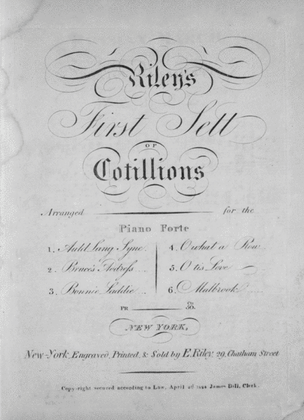 Riley's
First Sett
OF
Cotillions
Arranged for the
Piano Forte
1. Auld Lang Syne
2. Bruce's Address
3. Bonnie Laddie
4. O what a Row
5. O tis Love
6. Malbrook
PR. 38.
NEW YORK,
New York Engraved, Printed, & Sold by E. Riley, 29, Chatham Street
Copy right secured according to Law, April of James Dill, Clerk.